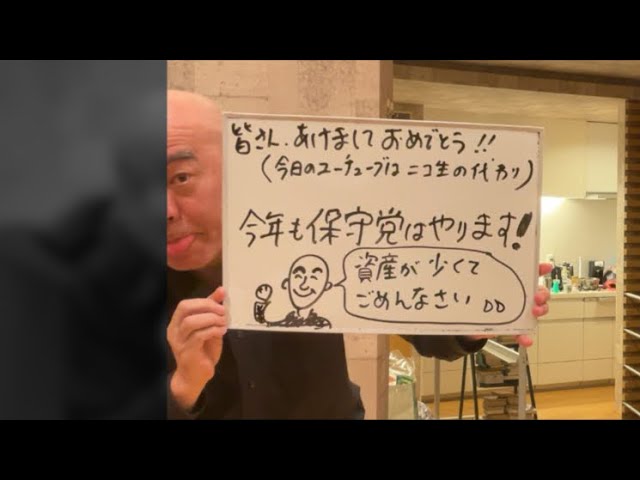 皆さん、あけましておめでとう!!
(今日のユーチューブはニコ生の代わり)
今年も保守党はやります!
資産が少くて
ごめんなさい